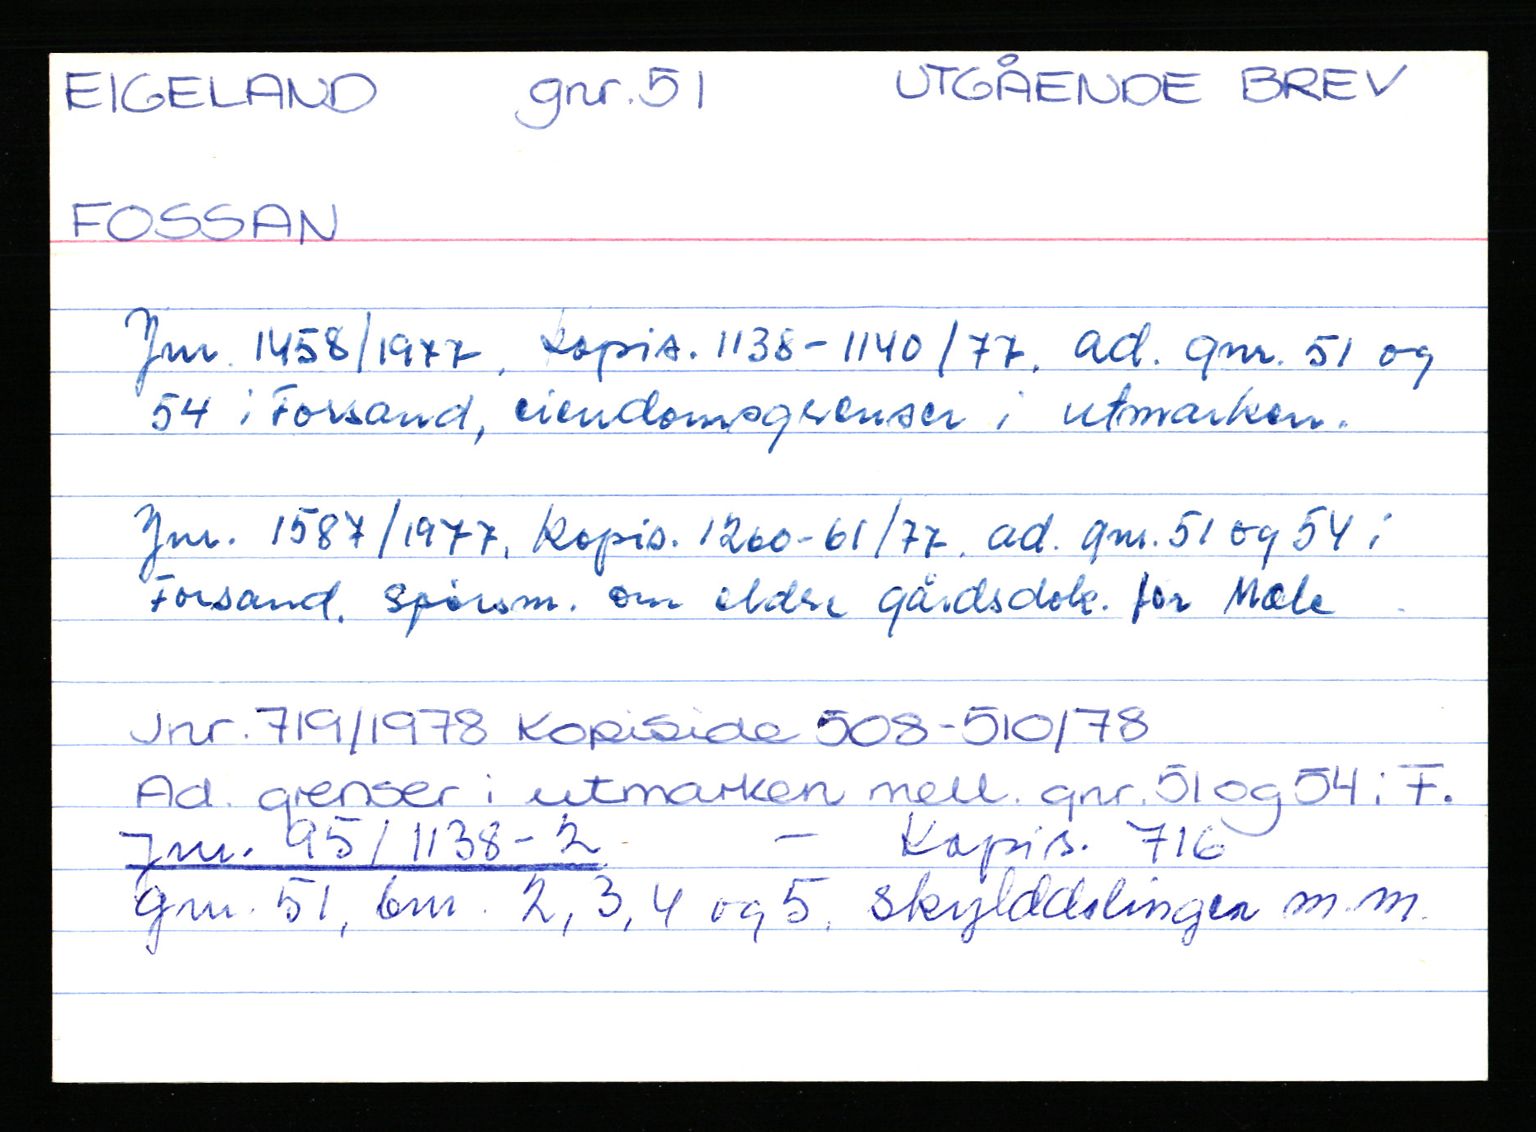 EIGELAND gnr. 51 UTGÅENDE BREV
FOSSAN
Jnr. 1458/1977, Kopis. 1138-1140/77, ad. gnr. 51 og
54 i Forsand, eiendomsgrenser i utmarken.
Jnr. 1587/1977, Kopis. 1260-61/77, ad. gnr. 51 og 54 i
Forsand. Spørsm. om eldre gårdsdok. for Mæle
Jnr. 719/1978 Kopiside 508-510/78
Ad. grenser i utmarken mell. gnr. 51 og 54 i F.
Jnr. 95/1138-2 - Kopis. 716
gnr. 51, bnr. 2, 3, 4 og 5, skylddelingen m.m.